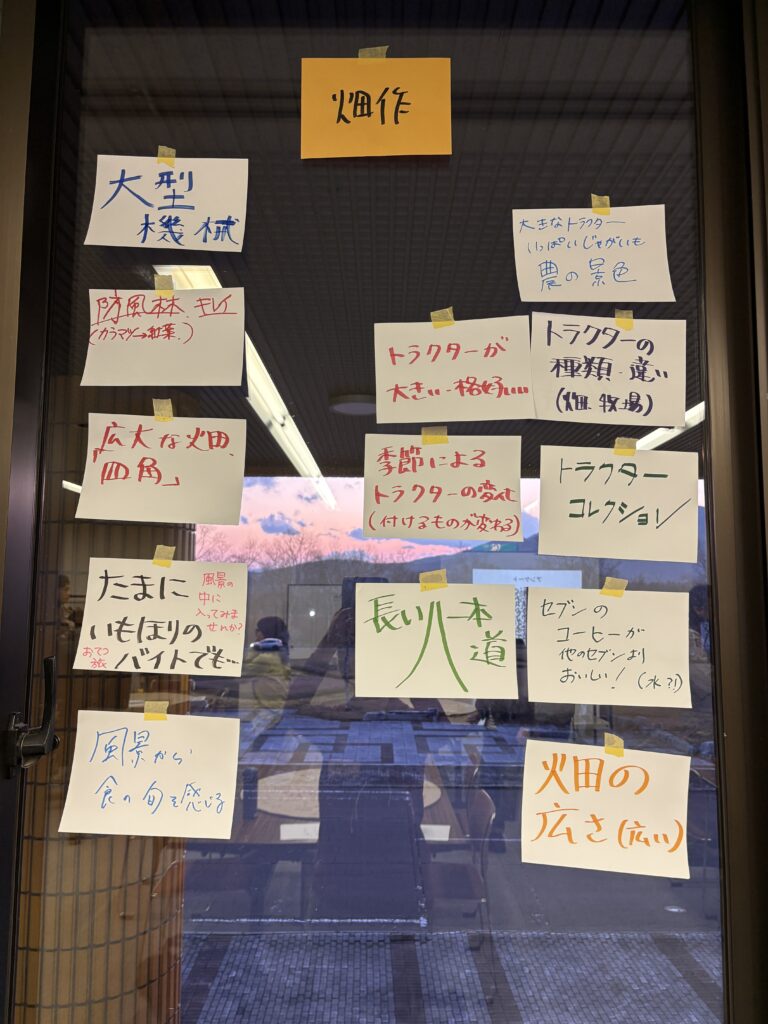 畑作
大型
機械
防風林、キレイ
(カラマツ→紅葉)
「広大な畑、
四角」
たまに
いもほりの
バイトでも…
風景の
中に
入ってみま
せんか?
おてつ
旅
風景から
食の旬を感じる
大きなトラクター
いっぱいじゃがいも
農の景色
トラクターが
大きい-格好いい
トラクターの
種類-違い
(畑、牧場)
季節による
トラクターの変化
(付けるものが変わる)
トラクター
コレクション
長い一本
道
セブンの
コーヒーが
他のセブンより
おいしい!(水?!)
畑の
広さ(広い)